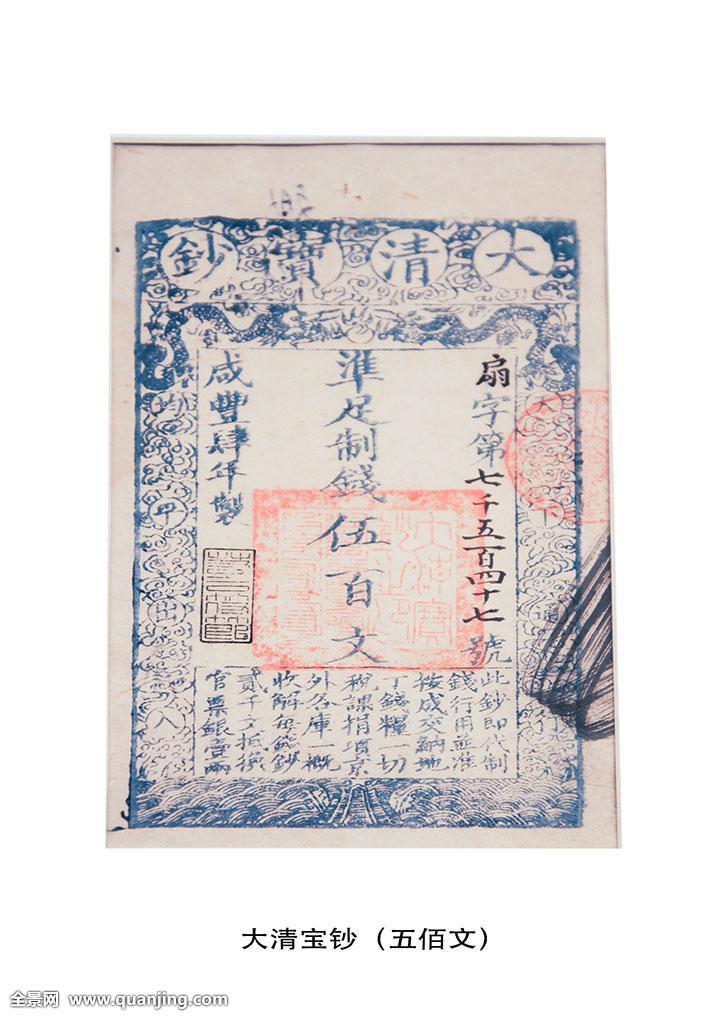 大清寶鈔
扇字第七千五百四十七號
準足制錢伍百文
咸豐肆年製
此鈔即代制
錢行用並准
按成交納地
丁錢糧一切
稅課捐項京
外各庫一概
收解每錢鈔
貳千文抵換
官票銀壹兩
大清宝钞（五佰文）
全景网 www.quanjing.com